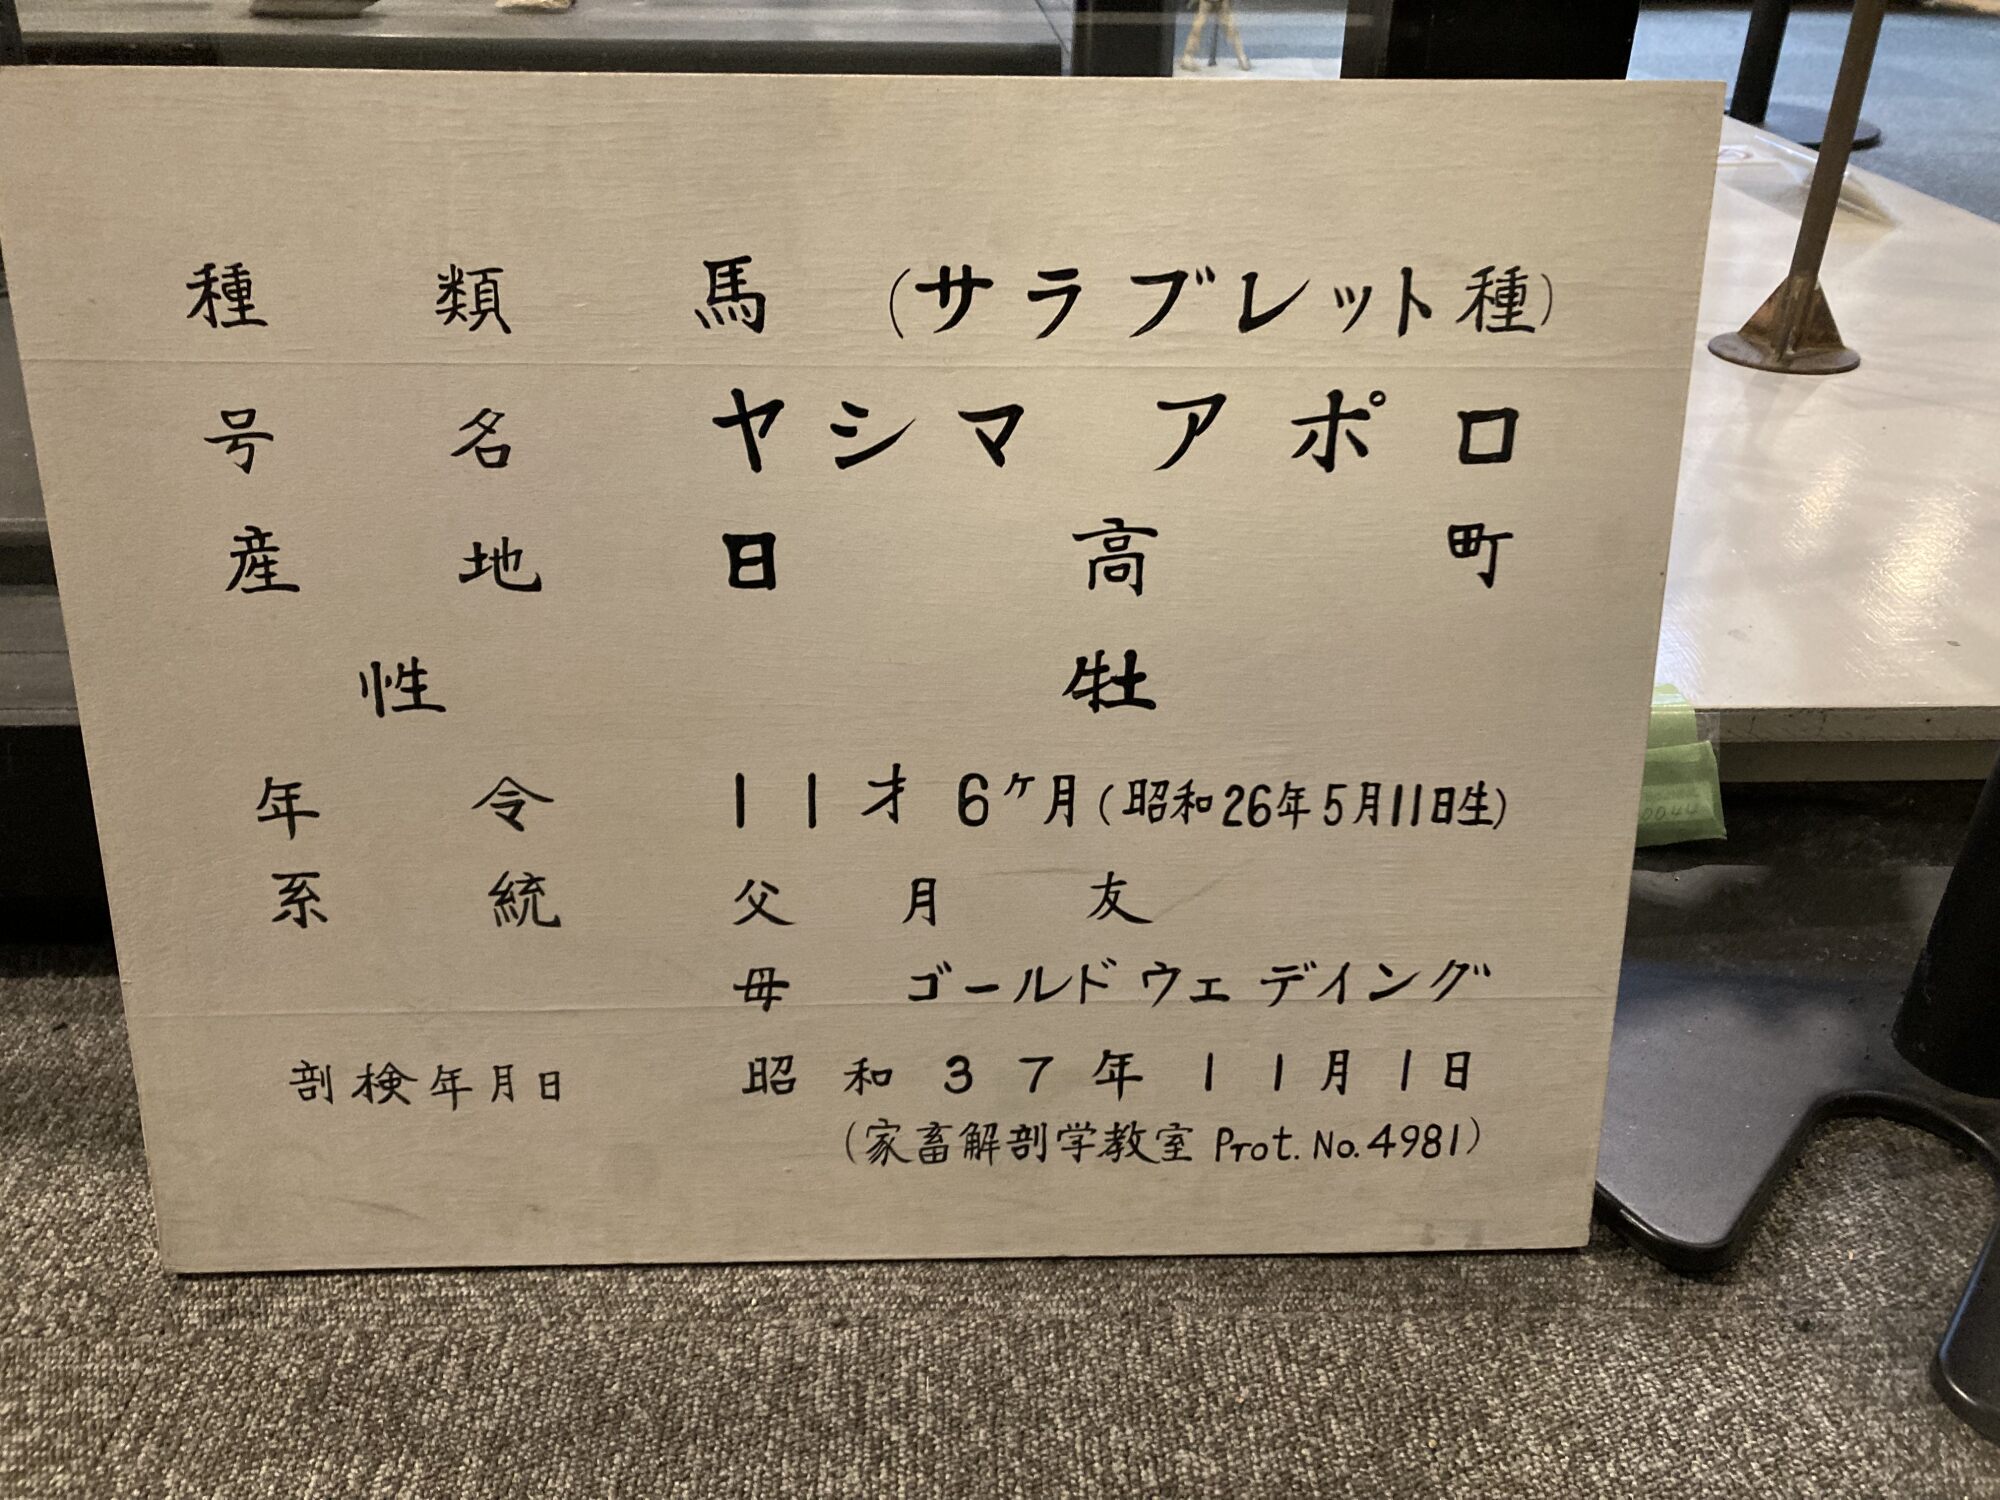 種類 馬 (サラブレット種)
号名 ヤシマ アポロ
産地 日高町
性 牡
年令 11才6ヶ月(昭和26年5月11日生)
系統 父 月友
母 ゴールドウェデイング
剖検年月日 昭和37年11月1日
(家畜解剖学教室 Prot. No. 4981)